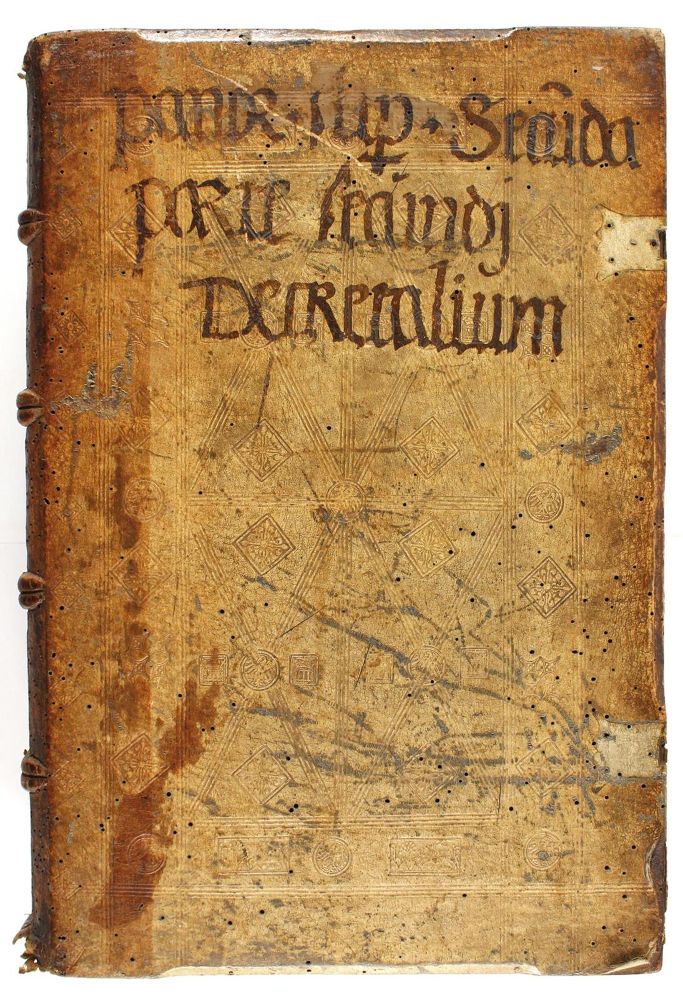 panor · sup · Secūda
parte secūndj
Decretalium